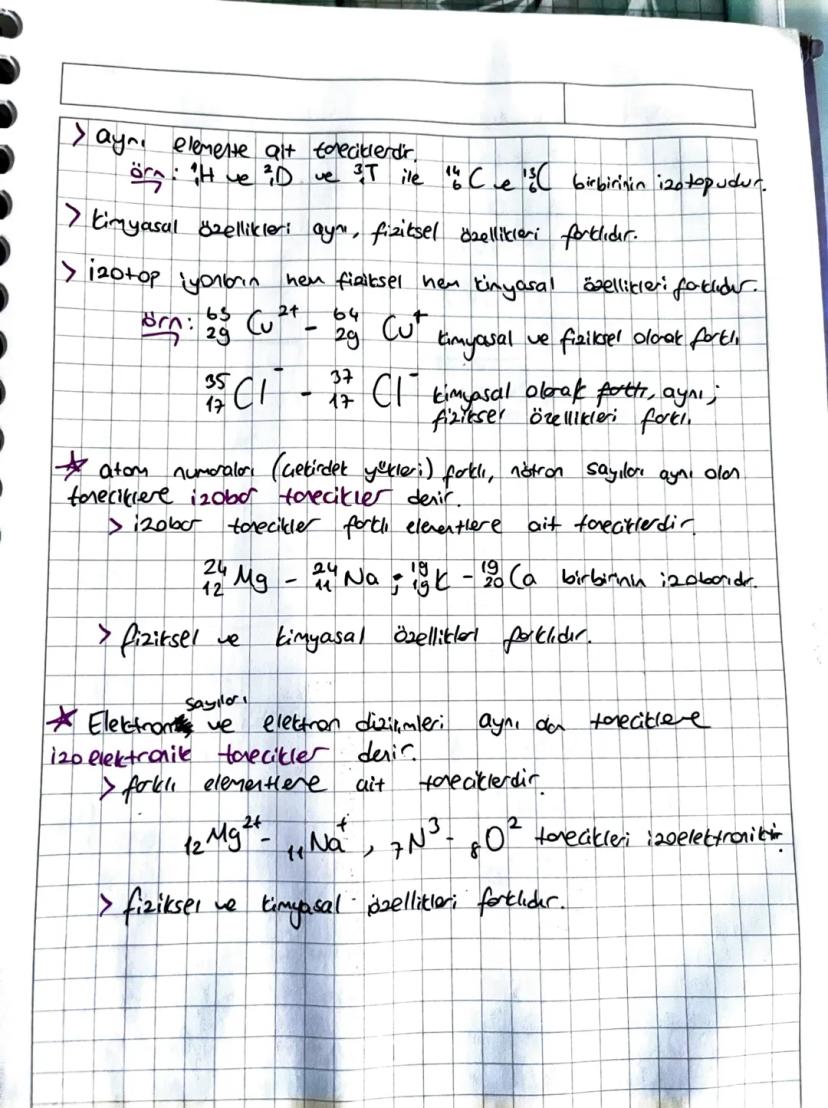 > aynı elemente ait taneciklerdir.
örn: ¹₁H ve ²₁D ve ³₁T ile ¹⁴₆C ve ¹³₆C birbirinin izotopudur.
> kimyasal özellikleri aynı, fiziksel özellikleri farklıdır.
> izotop iyonların hem fiziksel hem kimyasal özellikleri farklıdır.
örn: ⁶³₂₉Cu²⁺ - ⁶⁴₂₉Cu⁺ kimyasal ve fiziksel olarak farklı
³⁵₁₇Cl⁻ - ³⁷₁₇Cl⁻ kimyasal olarak farklı, aynı;
fiziksel özellikleri farklı.
★ atom numaraları (çekirdek yükleri) farklı, nötron sayıları aynı olan
taneciklere izobar tanecikler denir.
> izobar tanecikler farklı elementlere ait taneciklerdir.
²⁴₁₂Mg - ²⁴₁₁Na ; ¹⁹₁₉K - ¹⁹₂₀Ca birbirinin izobarıdır.
> fiziksel ve kimyasal özellikleri farklıdır.
★ Elektron sayıları ve elektron dizilimleri aynı olan taneciklere
izoelektronik tanecikler denir.
> farklı elementlere ait taneciklerdir.
₁₂Mg²⁺ - ₁₁Na⁺ , ₇N³⁻ ₈O² tanecikleri izoelektroniktir.
> fiziksel ve kimyasal özellikleri farklıdır.